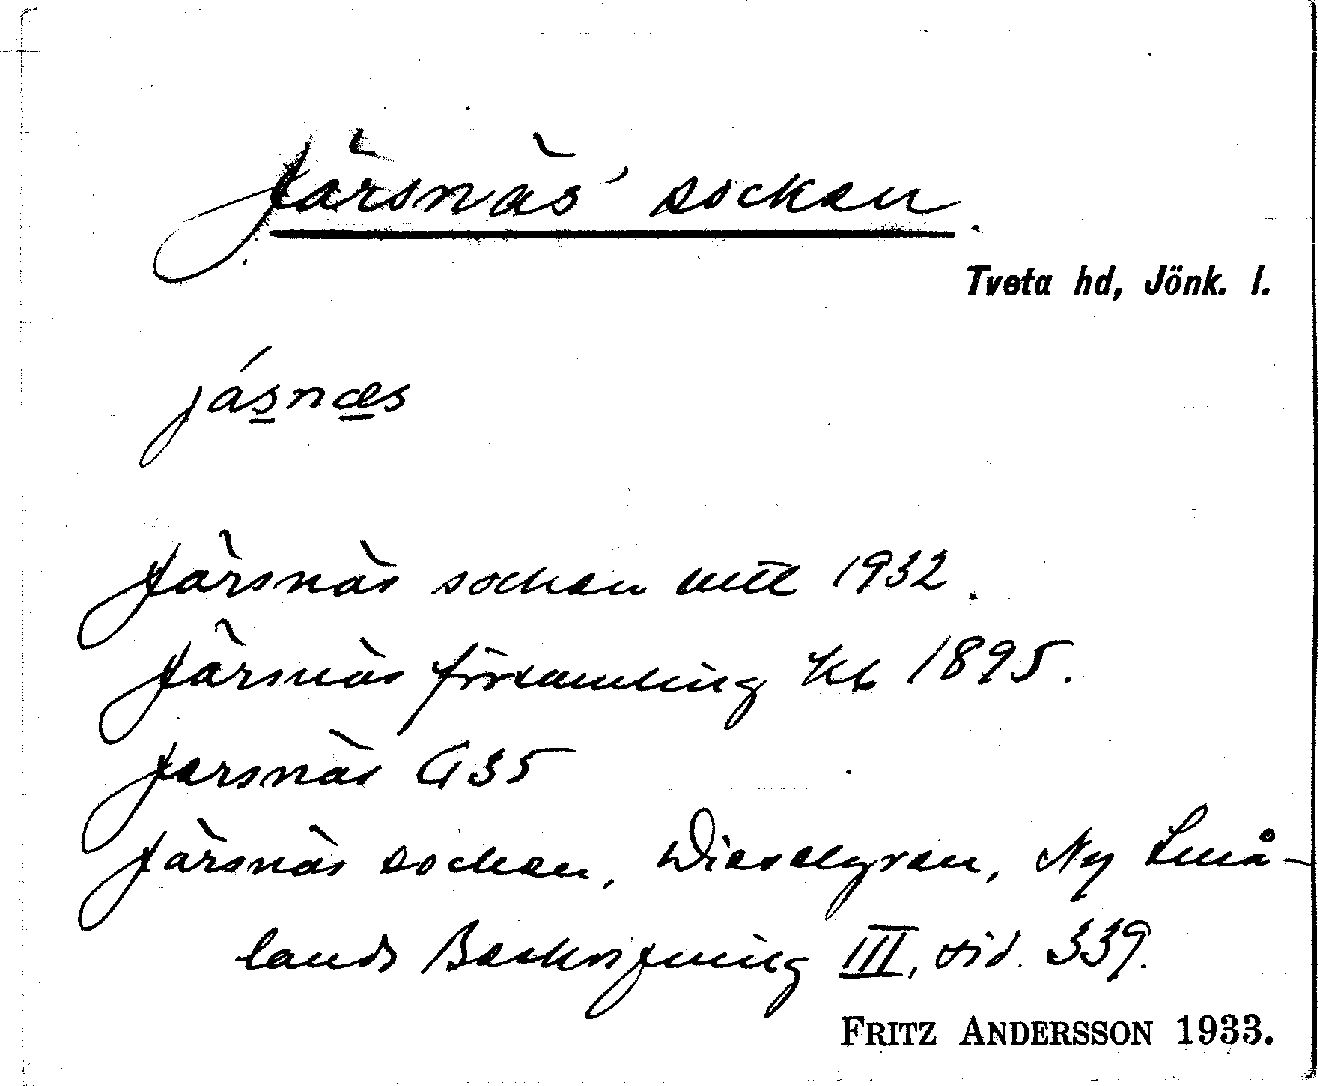 Järsnäs socken
Tveta hd, Jönk. l.
jásnæs
Järsnäs socken mtl 1932.
Järsnäs församling Kb 1895.
Jarsnäs G 35
Järsnäs socken, Wieselgren, Ny Små-
lands Beskrifning III, sid. 339.
FRITZ ANDERSSON 1933.